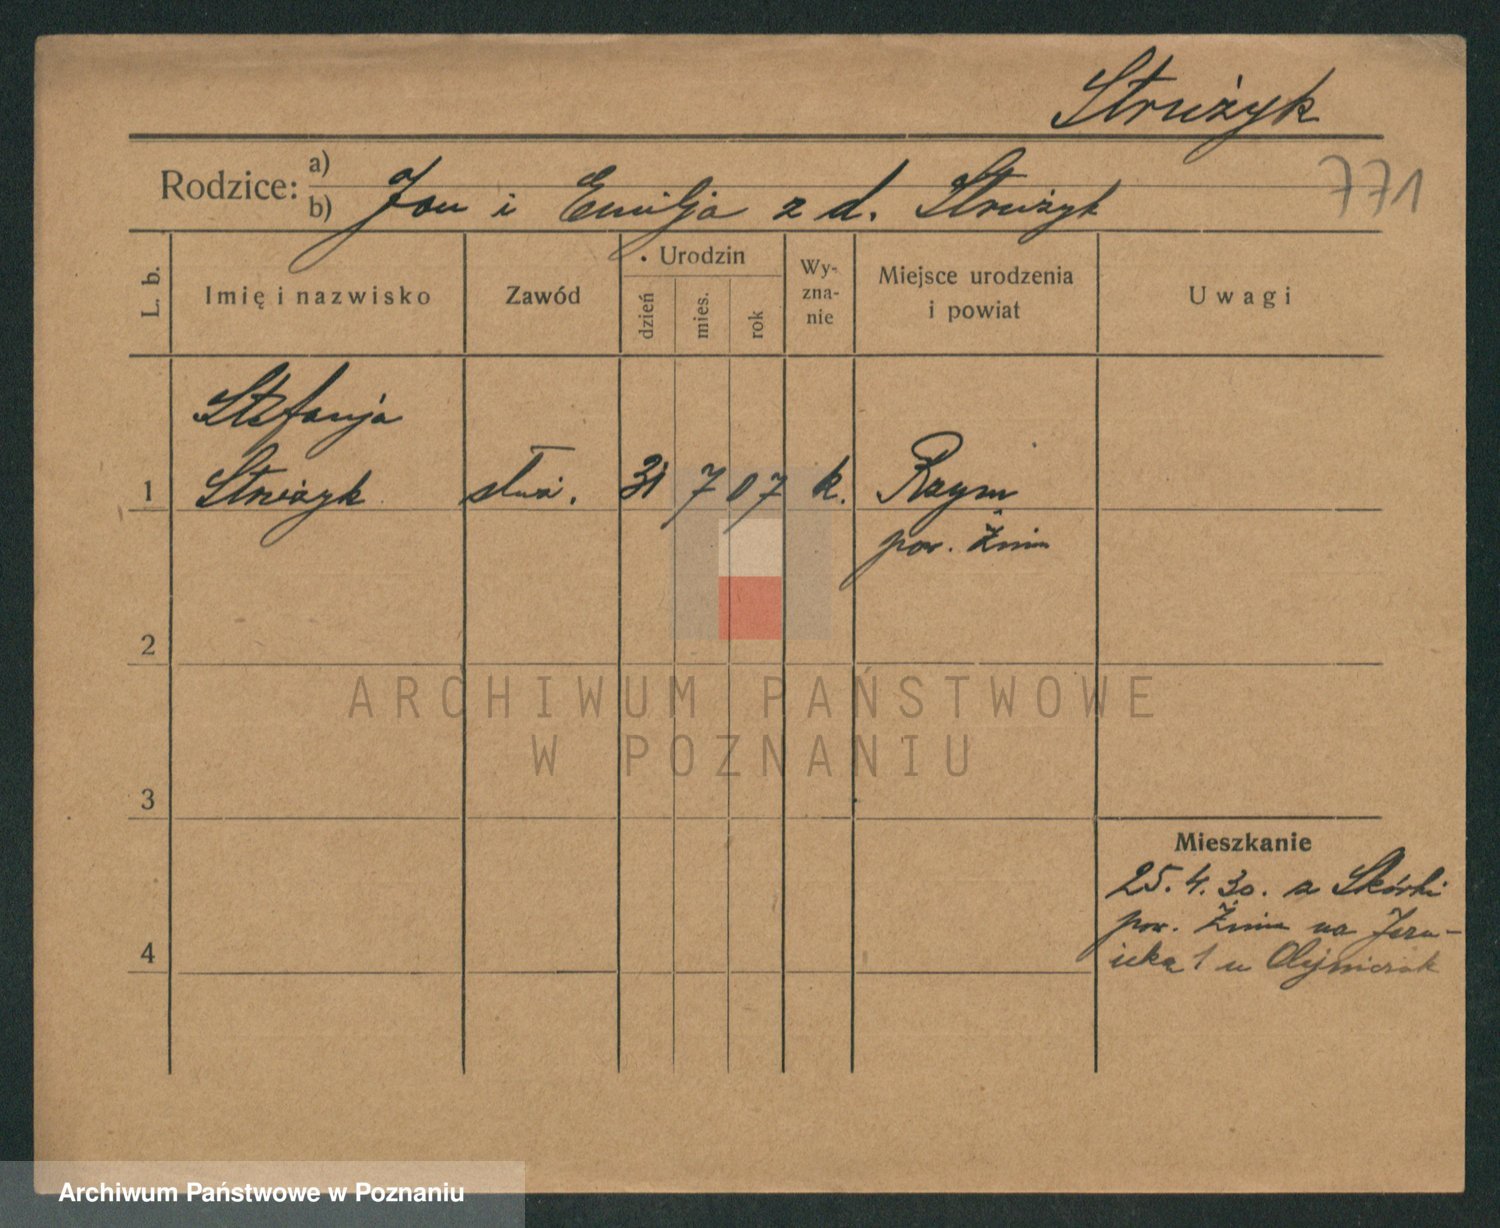 Strużyk
771
Rodzice:
a)
b)
Jan i Emilja z d. Strużyk
L. b.
Imię i nazwisko
Zawód
Urodzin
dzień
mies.
rok
Wy-
zna-
nie
Miejsce urodzenia
i powiat
Uwagi
Stefanja
1 Strużyk służ. 31 7 07 k. Rzym
pow. Żnin
2
ARCHIWUM PAŃSTWOWE
W POZNANIU
3
Mieszkanie
25.4.30. z Skórki
pow. Żnin na
4
1 u Olejniczak
Archiwum Państwowe w Poznaniu